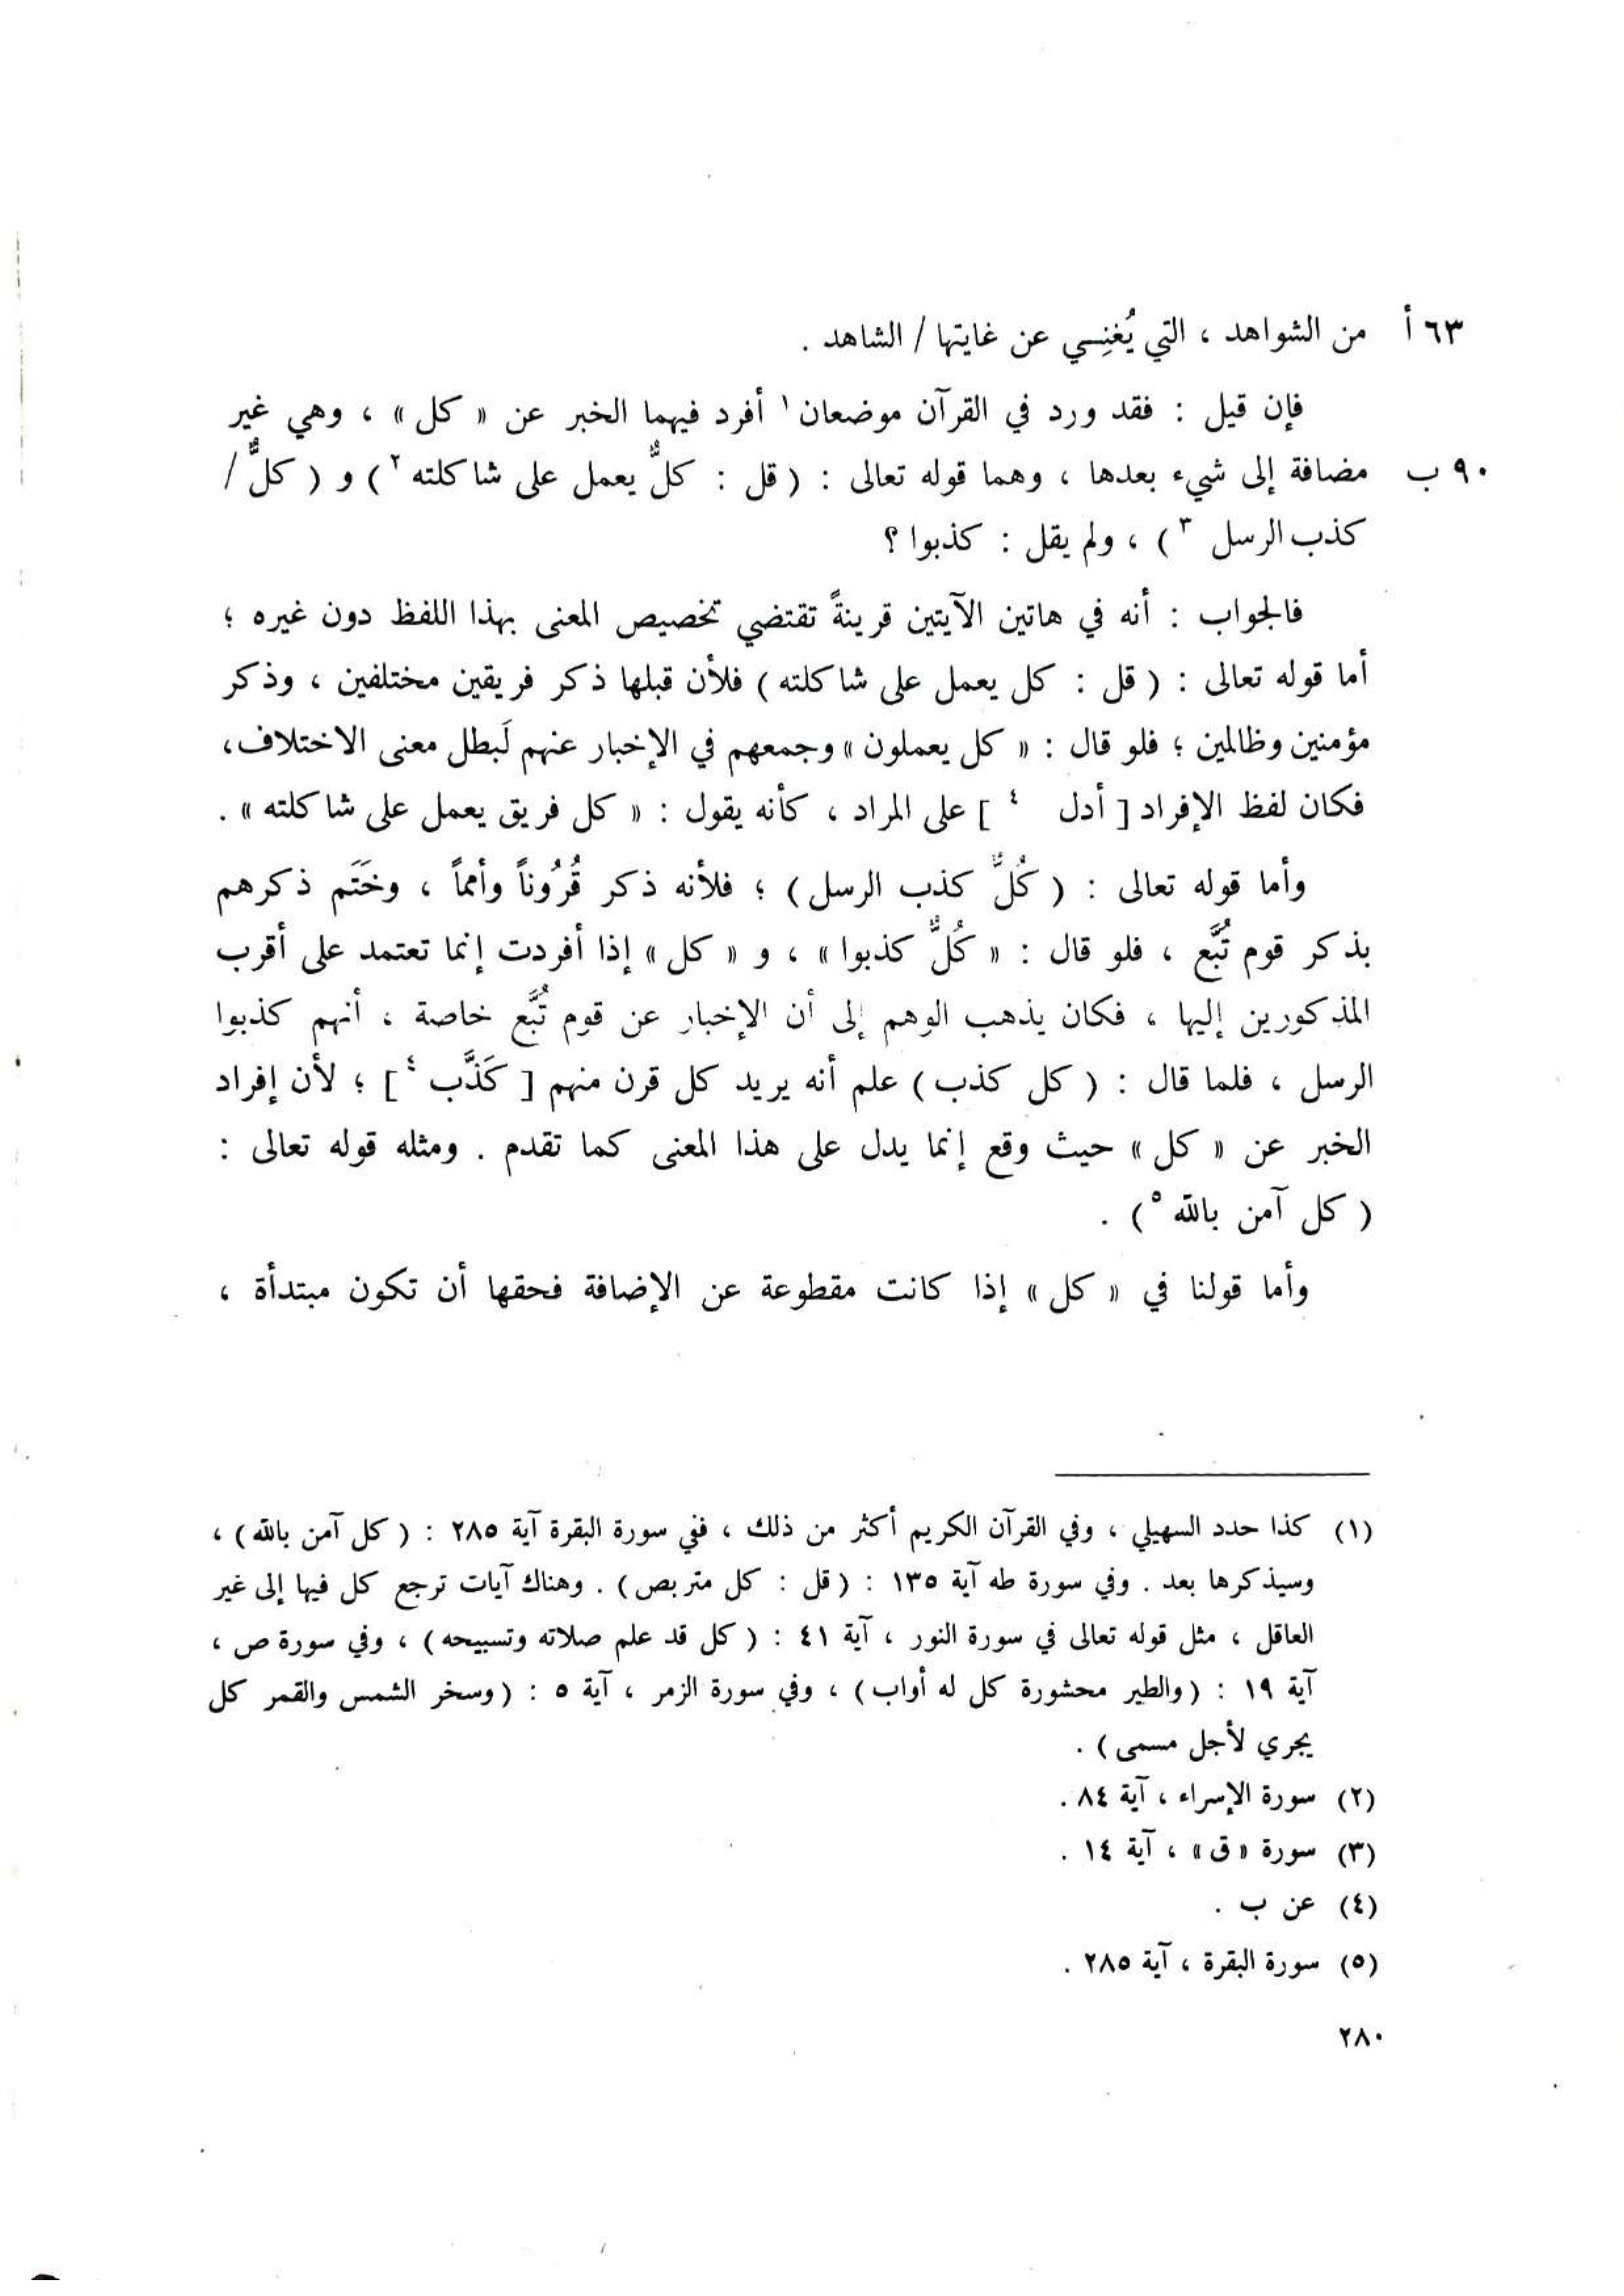 ٦٣ أ من الشواهد ، التي يُغنِسي عن غايتها / الشاهد .
فإن قيل : فقد ورد في القرآن موضعان ١ أفرد فيهما الخبر عن « كل » ، وهي غير
٩٠ ب مضافة إلى شيء بعدها ، وهما قوله تعالى : ( قل : كلٌّ يعمل على شاكلته ٢ ) و ( كلٌّ /
كذب الرسل ٣ ) ، ولم يقل : كذبوا ؟
فالجواب : أنه في هاتين الآيتين قرينةً تقتضي تخصيص المعنى بهذا اللفظ دون غيره ؛
أما قوله تعالى : ( قل : كل يعمل على شاكلته ) فلأن قبلها ذكر فريقين مختلفين ، وذكر
مؤمنين وظالمين ؛ فلو قال : « كل يعملون » وجمعهم في الإخبار عنهم لَبطل معنى الاختلاف،
فكان لفظ الإفراد [ أدل ٤ ] على المراد ، كأنه يقول : « كل فريق يعمل على شاكلته » .
وأما قوله تعالى : ( كُلٌّ كذب الرسل ) ؛ فلأنه ذكر قُرُوناً وأمماً ، وخَتَم ذكرهم
بذكر قوم تُبَّع ، فلو قال : « كُلٌّ كذبوا » ، و « كل » إذا أفردت إنما تعتمد على أقرب
المذكورين إليها ، فكان يذهب الوهم إلى أن الإخبار عن قوم تُبَّع خاصة ، أنهم كذبوا
الرسل ، فلما قال : ( كل كذب ) علم أنه يريد كل قرن منهم [ كَذَّب ٤ ] ؛ لأن إفراد
الخبر عن « كل » حيث وقع إنما يدل على هذا المعنى كما تقدم . ومثله قوله تعالى :
( كل آمن بالله ٥ ) .
وأما قولنا في « كل » إذا كانت مقطوعة عن الإضافة فحقها أن تكون مبتدأة ،
(١) كذا حدد السهيلي ، وفي القرآن الكريم أكثر من ذلك ، ففي سورة البقرة آية ٢٨٥ : ( كل آمن بالله ) ،
وسيذكرها بعد . وفي سورة طه آية ١٣٥ : ( قل : كل متربص ) . وهناك آيات ترجع كل فيها إلى غير
العاقل ، مثل قوله تعالى في سورة النور ، آية ٤١ : ( كل قد علم صلاته وتسبيحه ) ، وفي سورة ص ،
آية ١٩ : ( والطير محشورة كل له أواب ) ، وفي سورة الزمر ، آية ٥ : ( وسخر الشمس والقمر كل
يجري لأجل مسمى ) .
(٢) سورة الإسراء ، آية ٨٤ .
(٣) سورة « ق » ، آية ١٤ .
(٤) عن ب .
(٥) سورة البقرة ، آية ٢٨٥ .
٢٨٠